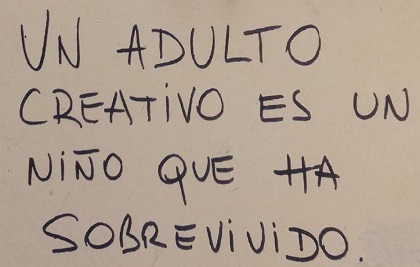 UN ADULTO
CREATIVO ES UN
NIÑO QUE HA
SOBREVIVIDO.